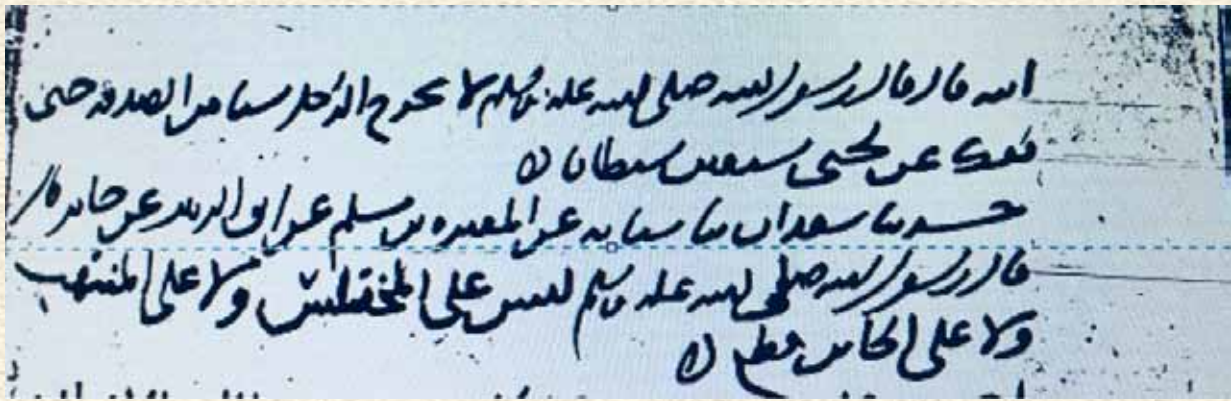 ابيه قال قال رسول الله صلى الله عليه وسلم لا يخرج الرجل شيئا من الصدقة حتى
يفك عن لحيى سبعين شيطانا
حدثنا سعدان ثنا شبابه عن المغيره بن مسلم عن ابى الزبير عن جابر قال
قال رسول الله صلى الله عليه وسلم ليس على المختلس ولا على المنتهب
ولا على الخاين قطع